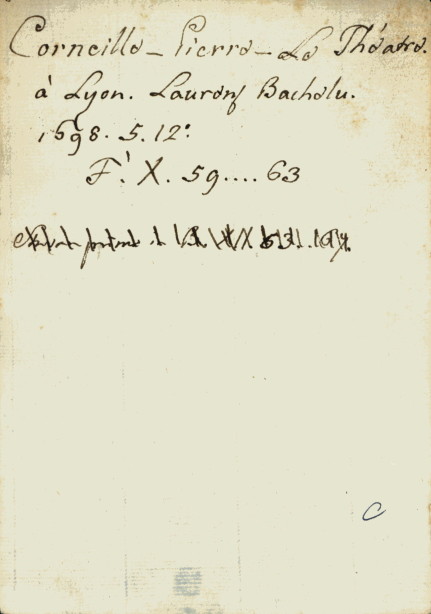 Corneille – Pierre – Le Théatre.
à Lyon. Laurens Bachelu.
1698. 5. 12°
F.' X. 59....63
C